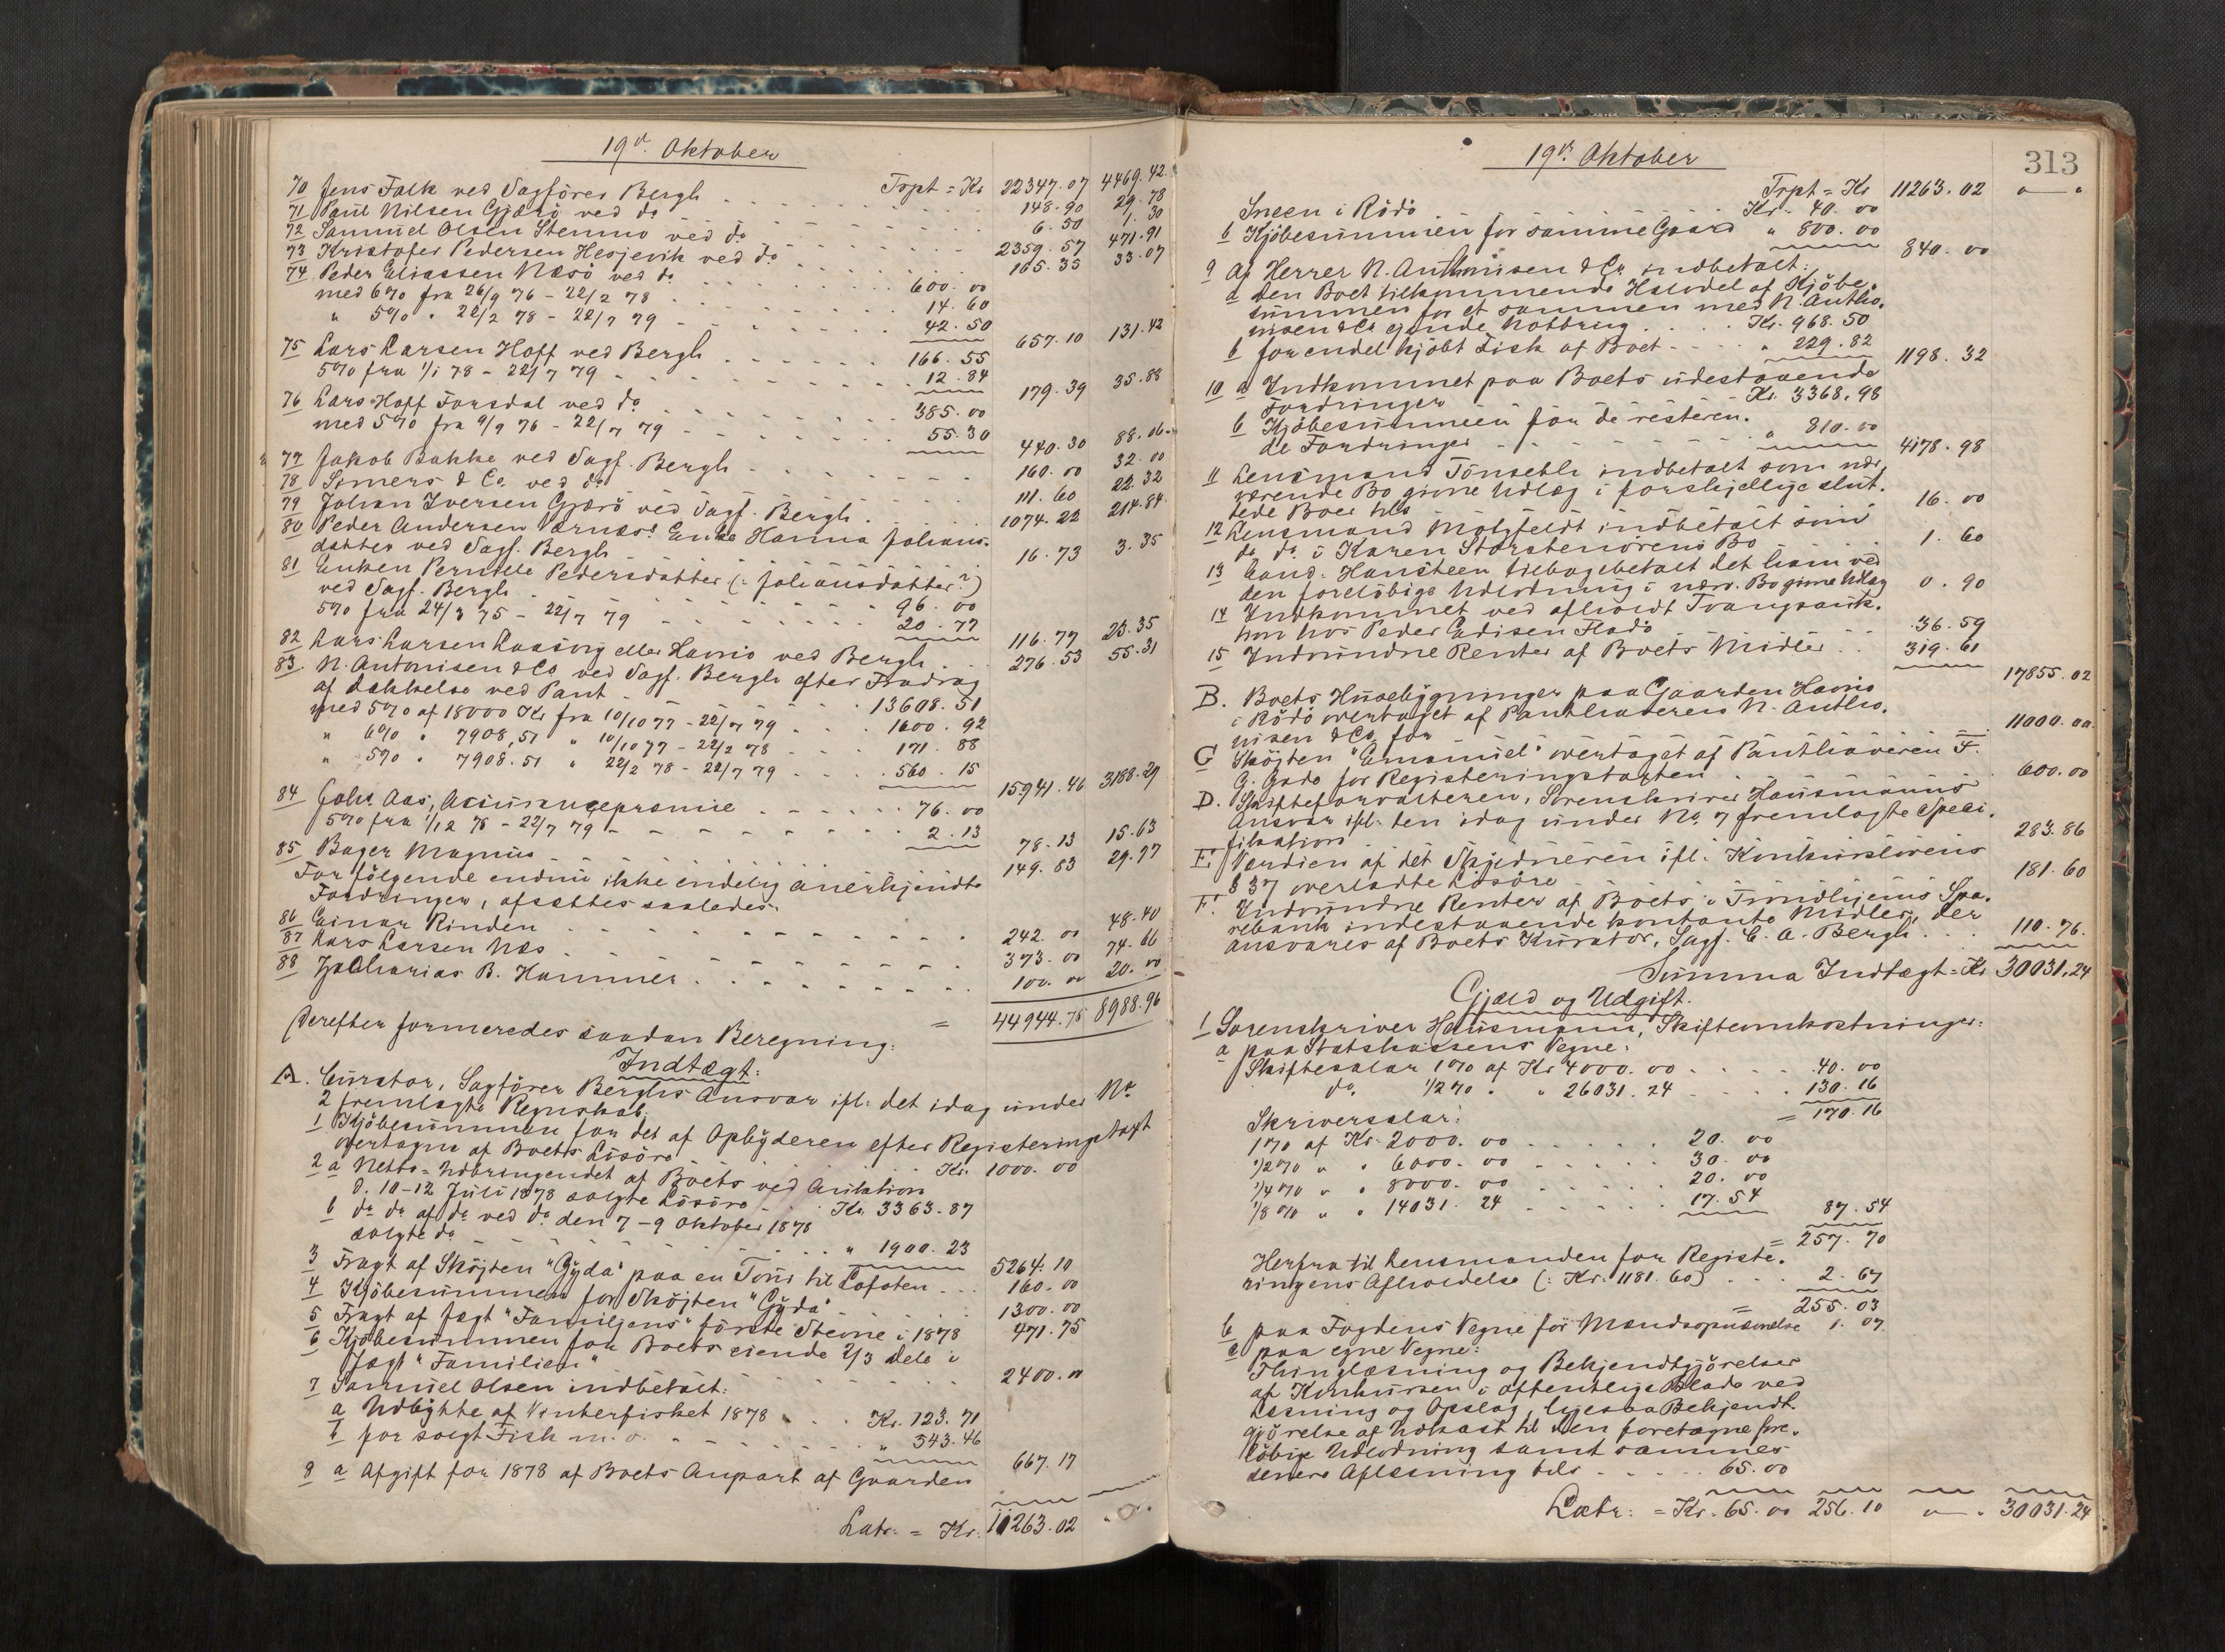 19d. Oktober
Trpt = Kr 22347.07 4469.42
70 Jens Falk ved Sagförer Bergh . . . 148.90 29.78
71 Paul Nilsen Gjærö ved do 6.50 1.30
72 Samuel Olsen Stemmo ved do 2359.57 471.91
73 Kristofer Pedersen Hesjevik ved do 165.35 33.07
74 Peder Eliassen Næsö ved do . . . 600.00
med 6% fra 26/9 76 - 22/2 78 . . . 14.60
" 5% " 22/2 78 - 22/7 79 - - - 42.50
657.10 131.42
75 Lars Larsen Hoff ved Bergh . . . 166.55
5% fra 1/1 78 - 22/7 79 . . . 12.84
179.39 35.88
76 Lars Hoff Forsdal ved do . . . 385.00
med 5% fra 9/9 76 - 22/7 79 - - - 55.30
440.30 88.06
77 Jakob Bakke ved Sagf. Bergh . . . 160.00 32.00
78 Simers & Co. ved do . . . 111.60 22.32
79 Johan Iversen Gjærö ved Sagf. Bergh . . . 1074.22 214.84
80 Peder Andersen Værnæs' Enke Hanna Johans-
datter ved Sagf. Bergh . . . 16.73 3.35
81 Enken Pernille Pedersdatter (: Johansdatter?)
ved Sagf. Bergh . . . 96.00
5% fra 24/3 75 - 22/7 79 - - - 20.77
116.77 23.35
82 Lars Larsen Laasvig eller Havnö ved Bergh . . . 276.53 55.31
83 N. Antonisen & Co ved Sagf. Bergh efter Fradrag
af Dækkelse ved Pant . . . 13608.51
med 5% af 18000 Kr fra 10/10 77 - 22/7 79 . . . 1600.92
" 6% " 7908,51 " 10/10 77 - 22/2 78 . . . 171.88
" 5% " 7908.51 " 22/2 78 - 22/7 79 . . . 560.15
15941.46 3188.29
84 Johs Aas, Assurancepræmie . . . 76.00
5% fra 1/12 78 - 22/7 79 - - - 2.13
78.13 15.63
85 Bager Magnus . . . 149.83 29.97
For fölgende endnu ikke endelig anerkjendte
Fordringer, afsættes saaledes:
86 Einar Rinden . . . 242.00 48.40
87 Lars Larsen Næs . . . 373.00 74.66
88 Zacharias B. Hammer . . . 100.00 20.00
= 44944.75 8988.96
Derefter formeredes saadan Beregning:
Indtægt:
A. Curator, Sagförer Berghs Ansvar ifl: det idag under No
2 fremlagte Regnskab:
1 Kjöbesummen for det af Opbyderen efter Registeringstaxt
overtagne af Boets Lösöre . . . Kr. 1000.00
2 a Netto-Udbringendet af Boets ved Auktion
d. 10-12 Juli 1878 solgte Lösöre . . . Kr. 3363.87
b do do af do ved do den 7-9 Oktober 1878
solgte do . . . " 1900.23
5264.10
3 Fragt af Skøjten "Gyda" paa en Tour til Lofoten . . . 160.00
4 Kjöbesummen for Skøjten "Gyda" . . . 1300.00
5 Fragt af Jægt "Familjens" förste Stevne i 1878 471.75
6 Kjöbesummen for Boets eiende 2/3 Dele i
Jægt "Familien" . . . 2400.00
7 Samuel Olsen indbetalt:
a Udbytte af Vinterfisket 1878 . . . Kr. 123.71
b for solgt Fisk m. v. . . . " 543.46
667.17
8 a Afgift for 1878 af Boets Anpart af Gaarden
Latr: = Kr. 11263.02 " "
313
19d. Oktober
Trpt = Kr 11263.02 " "
Sneen i Rödö . . . Kr. 40.00
b Kjöbesummen for samme Gaard " 800.00
840.00
9 Af Herrer N. Anthonisen & Co indbetalt:
a Den Boet tilkommende Halvdel af Kjöbe-
summen for et sammen med N. Antho-
nisen & Co eiende Notbrug . . . Kr. 968.50
b for endel kjöbt Fisk af Boet . . . " 229.82
1198.32
10 a Indkommet paa Boets udestaaende
Fordringer Kr. 3368.98
b Kjöbesummen for de resteren-
de Fordringer . . . " 810.00
4178.98
11 Lensmand Tönseth indbetalt som nær-
værende Bo givne Udlæg i forskjellige slut-
tede Boer tils 16.00
12 Lensmand Motzfeldt indbetalt som
do do i Karen Storstenörens Bo . . . 1.60
13 Cand. Hansteen tilbagebetalt det ham ved
den foreløbige Udlodning i nærv. Bo givne Udlæg 0.90
14 Indkommet ved afholdt Tvangsauk-
tion hos Peder Edisen Flodö . . . 36.59
15 Indvundne Renter af Boets Midler . . . 319.61
17855.02
B. Boets Husebygninger paa Gaarden Havnö
i Rödö overtaget af Panthaveren N. Antho-
nisen & Co for . . . 11000.00
C Skøjten "Emanuel" overtaget af Panthaveren F.
G. Gade for Registeringstaxten . . . 600.00
D. Skifteforvalteren, Sorenskriver Hausmanns
Ansvar ifl. den idag under No 7 fremlagte Speci-
fikation . . . 283.86
E. Værdien af det Skyldneren ifl. Konkurslovens
§ 37 overladte Lösöre 181.60
F. Indvundne Renter af Boets i Trondhjems Spa-
rebank indestaaende kontante Midler, der
ansvares af Boets Kurator, Sagf. C. A. Bergh . . . 110.76
Summa Indtægt = Kr 30031.24
Gjæld og Udgift.
1 Sorenskriver Hausmann, Skifteomkostninger:
a paa Statskassens Vegne:
Skiftesalær 1% af Kr 4000.00 . . . 40.00
do 1/2% " " 26031.24 . . . 130.16
= 170.16
Skriversalær:
1% af Kr. 2000.00 . . . 20.00
1/2% " " 6000.00 . . . 30.00
1/4% " " 8000.00 . . . 20.00
1/8% " " 14031.24 . . . 17.54
87.54
= 257.70
Herfra til Lensmanden for Registe-
ringens Afholdelse (: Kr. 1181.60) . . . 2.67
= 255.03
b paa Fogdens Vegne for Mandsopnævnelse 1.07
c paa egne Vegne:
Thinglæsning og Bekjendtgjörelser
af Konkursen i offentlige Blade ved
Læsning og Opslag, ligesaa Bekjendt-
gjörelse af Udkast til den foretagne fore-
löbige Udlodning samt sammes
senere Aflæsning tils . . . 65.00
Latr: = Kr. 65.00 256.10 " " 30031.24